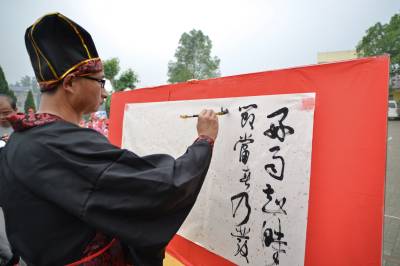 好雨知時
節當春乃發